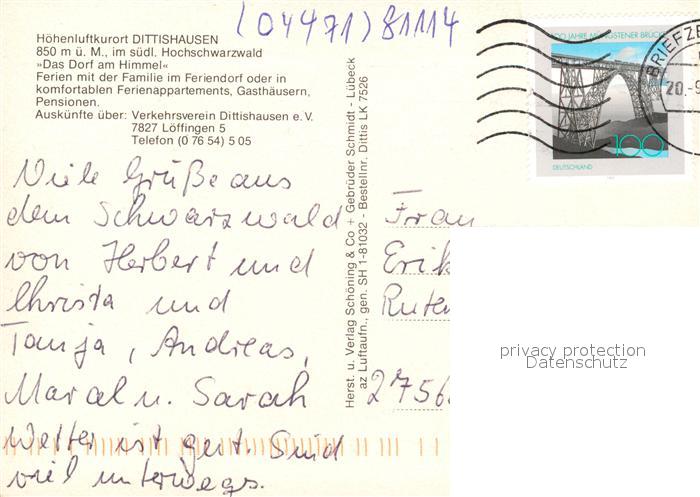 (04471) 81114
Höhenluftkurort DITTISHAUSEN
850 m ü. M., im südl. Hochschwarzwald
»Das Dorf am Himmel«
Ferien mit der Familie im Feriendorf oder in
komfortablen Ferienappartements, Gasthäusern,
Pensionen.
Auskünfte über: Verkehrsverein Dittishausen e.V.
7827 Löffingen 5
Telefon (0 76 54) 5 05
Viele Grüße aus
dem Schwarzwald
von Herbert und
Christa und
Tanja, Andreas,
Marcel u. Sarah
Wetter ist gut. Sind
viel unterwegs.
Herst. u. Verlag Schöning & Co + Gebrüder Schmidt - Lübeck
az Luftaufn., gen. SH 1-81032 - Bestellnr. Dittis LK 7526
100 JAHRE MÜNGSTENER BRÜCKE
100
DEUTSCHLAND
BRIEFZE
20.-9
Frau
Erik
Ruten
2756
privacy protection
Datenschutz